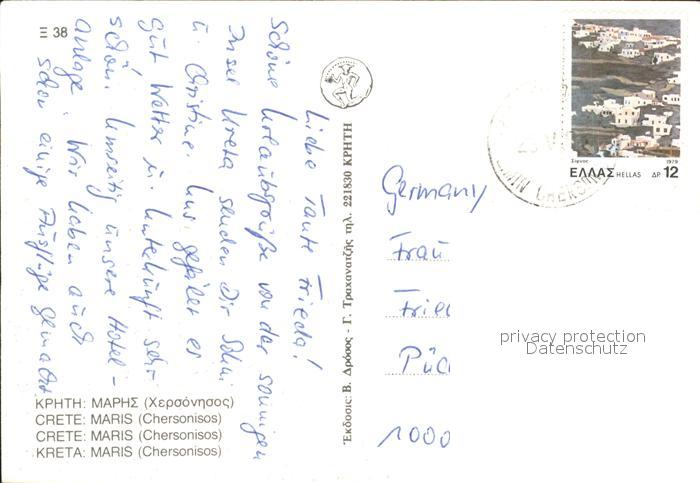 Ξ 38
Liebe Tante Frieda!
Schöne Urlaubsgrüße von der sonnigen
Insel Kreta senden Dir
u. Christine. Uns gefällt es
gut Wetter u. Unterkunft sehr
schön. Umseitig unsere Hotel-
anlage. Wir haben auch
schon einige Ausflüge gemacht
ΚΡΗΤΗ: ΜΑΡΗΣ (Χερσόνησος)
CRETE: MARIS (Chersonisos)
CRETE: MARIS (Chersonisos)
KRETA: MARIS (Chersonisos)
Ἐκδοσις: Β. Δρόσος - Γ. Τραχανατζής τηλ. 221830 ΚΡΗΤΗ
Σίφνος 1979
ΕΛΛΑΣ HELLAS ΔΡ 12
LIMIN CHERSONI
Germany
Frau
Frie
Püc
1000
privacy protection
Datenschutz